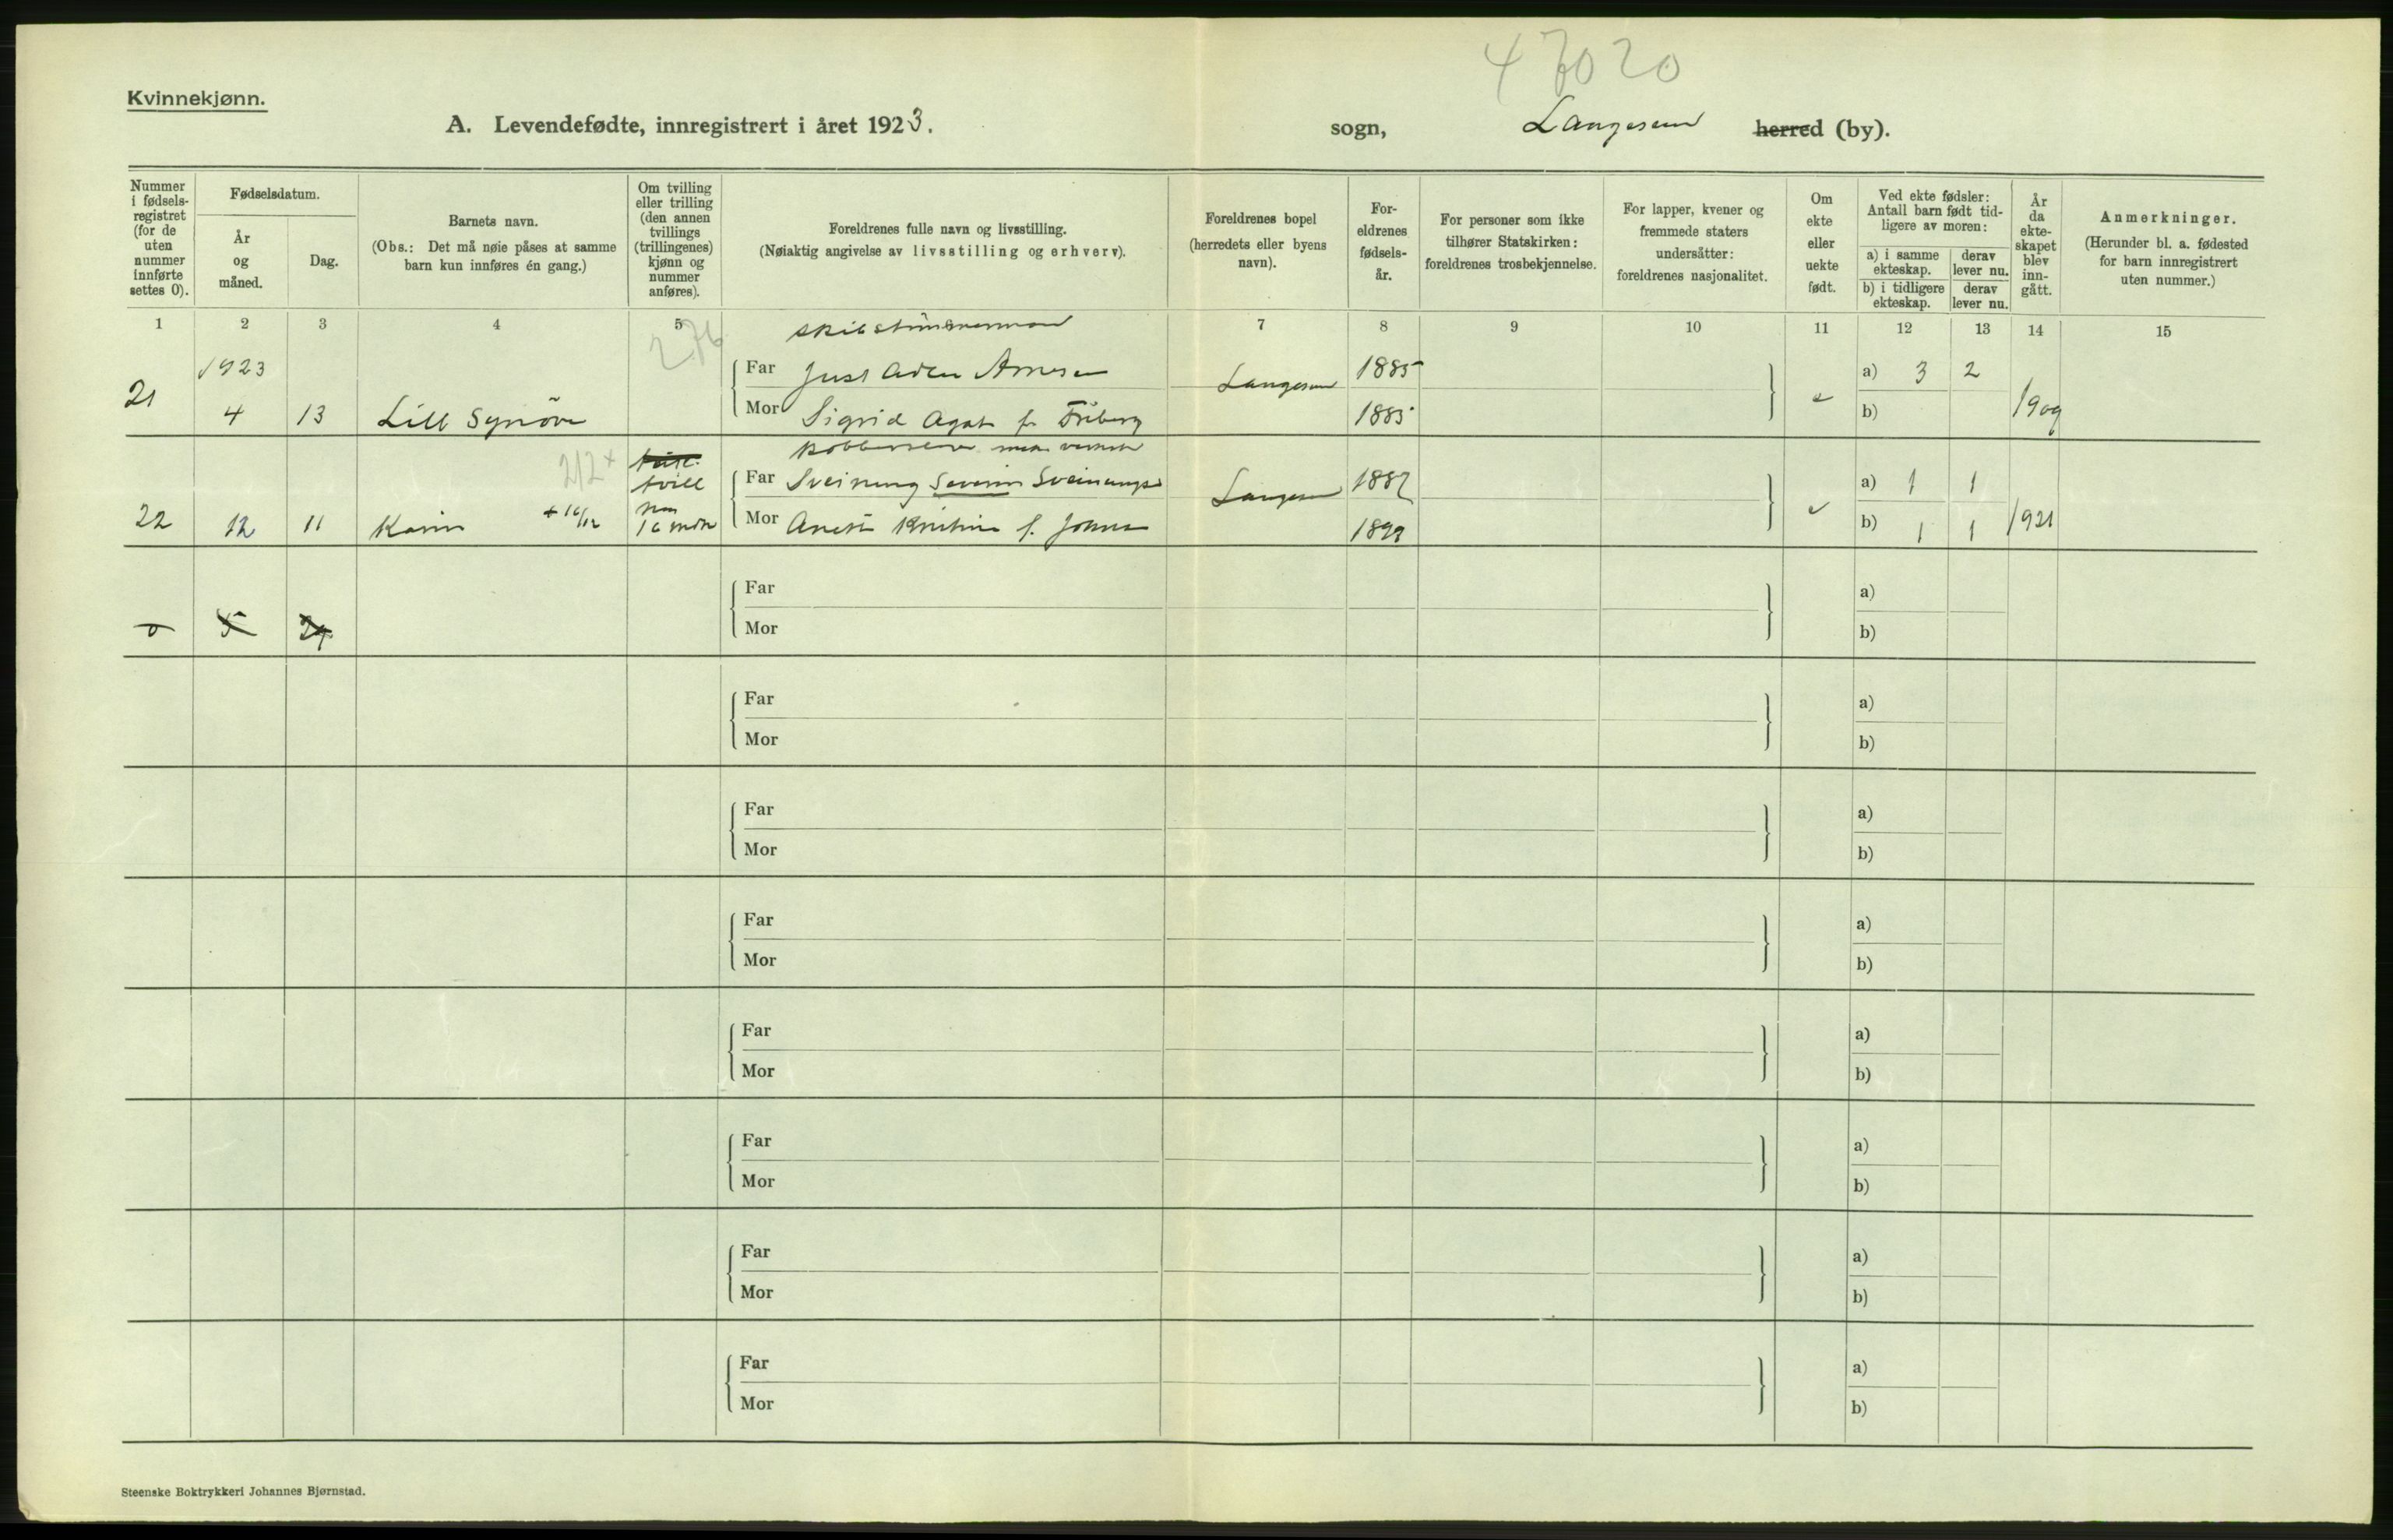 47020
Kvinnekjønn.
A. Levendefødte, innregistrert i året 1923. sogn, Langesund herred (by).
Nummer i fødsels-registret (for de uten nummer innførte settes 0).
Fødselsdatum.
År og måned.
Dag.
Barnets navn.
(Obs.: Det må nøie påses at samme barn kun innføres én gang.)
Om tvilling eller trilling (den annen tvillings (trillingenes) kjønn og nummer anføres).
Foreldrenes fulle navn og livsstilling.
(Nøiaktig angivelse av livsstilling og erhverv).
Foreldrenes bopel (herredets eller byens navn).
For-eldrenes fødsels-år.
For personer som ikke tilhører Statskirken: foreldrenes trosbekjennelse.
For lapper, kvener og fremmede staters undersåtter: foreldrenes nasjonalitet.
Om ekte eller uekte født.
Ved ekte fødsler: Antall barn født tid-ligere av moren:
a) i samme ekteskap. derav lever nu.
b) i tidligere ekteskap. derav lever nu.
År da ekte-skapet blev inn-gått.
Anmerkninger.
(Herunder bl. a. fødested for barn innregistrert uten nummer.)
1 2 3 4 5 7 8 9 10 11 12 13 14 15
276 skibstømmermann
1923 Far Just Arnesen 1885 a) 3 2
21 4 13 Lill Synöve Mor Sigrid Agate f. Friberg Langesund 1885 e b) 1909
212 x tvill
Far Sveinung Severin Sveinungs Langesund 1887 a) 1 1
22 12 11 Karin + 16/12 16 Mor Kristine f. e b) 1 1 1921
Far a)
0 5 29 Mor b)
Far a)
Mor b)
Far a)
Mor b)
Far a)
Mor b)
Far a)
Mor b)
Far a)
Mor b)
Far a)
Mor b)
Far a)
Mor b)
Steenske Boktrykkeri Johannes Bjørnstad.